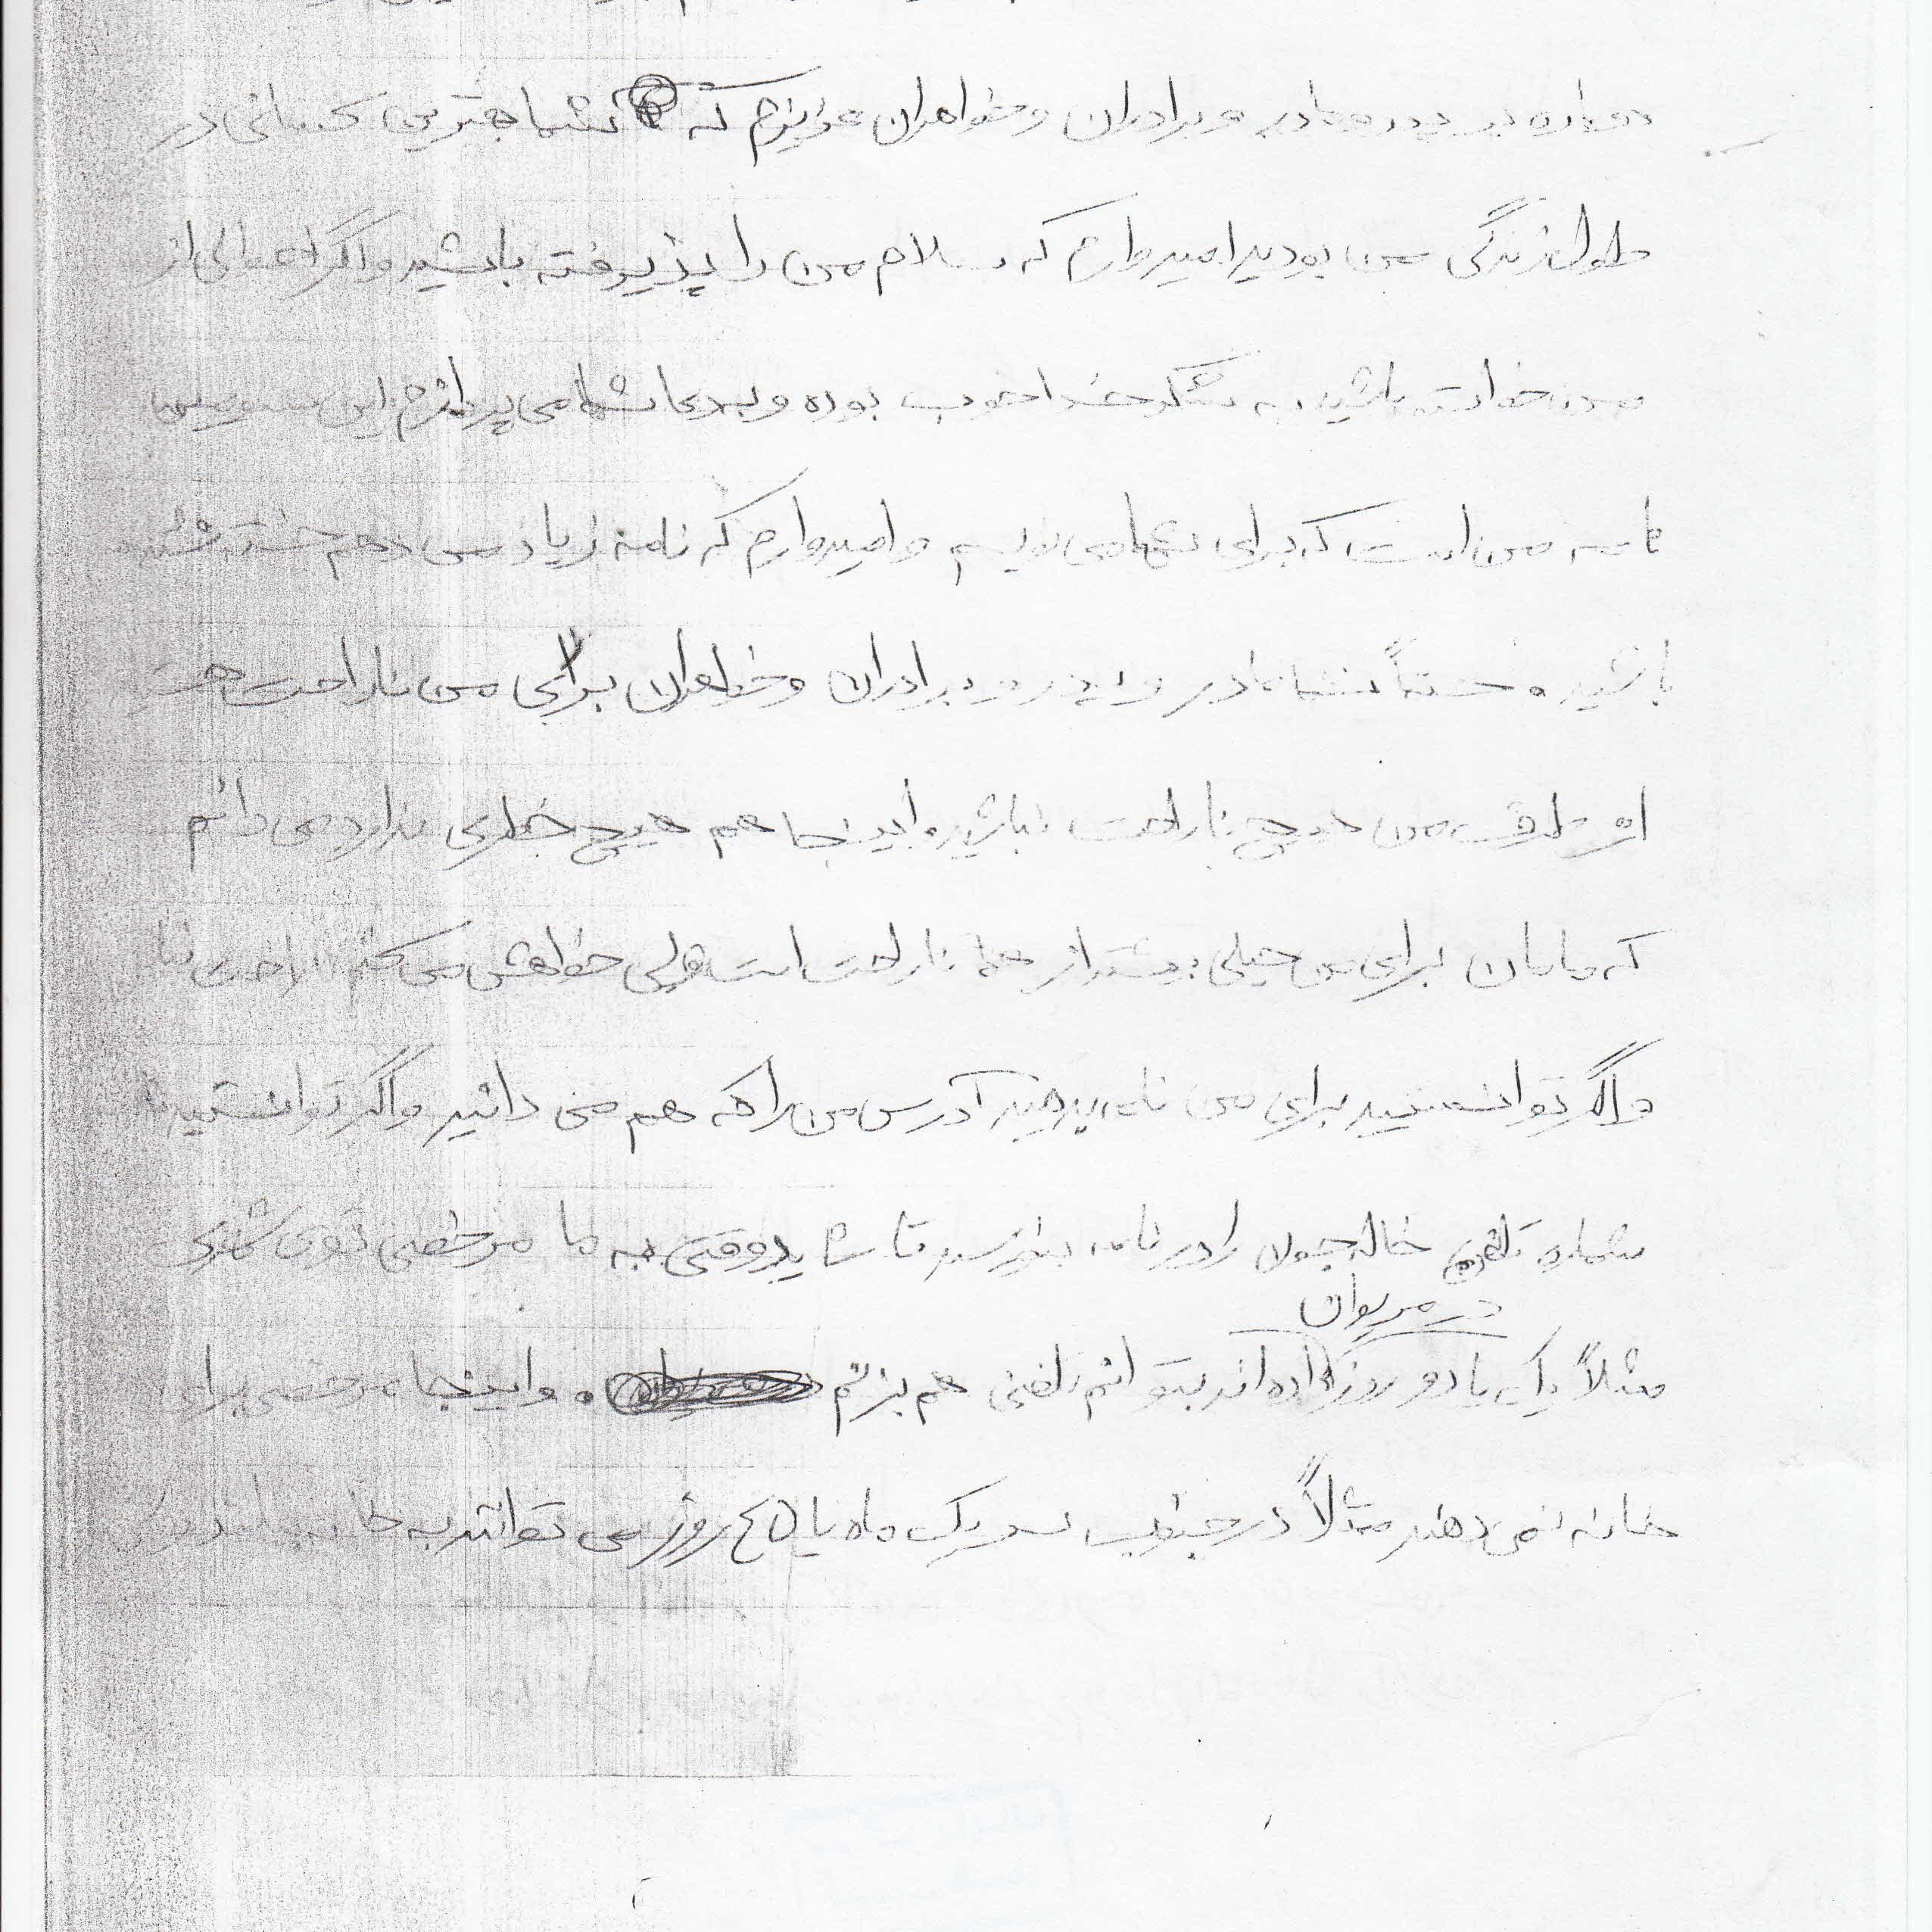 دوباره بر پدر و مادر و برادران و خواهران عزیزم که شما بهترین کسانی در
طول زندگی من بودید امیدوارم که سلام من را پذیرفته باشید و اگر احوالی از
من خواسته باشید به شکر خدا خوب بوده و به دعا شما می پردازم این سومین
نامه من است که برای شما می نویسم و امیدوارم که نامه زیاد می دهم خسته نشده
باشید و حتماً شما مادر و پدر و برادران و خواهران برای من ناراحت هست
از طرف من هیچ ناراحت نباشید و اینجا هم هیچ خطری ندارد می دانم
که مامان برای من خیلی بیشتر از همه ناراحت است ولی خواهش می کنم ناراحت نبا
و اگر توانستید برای من نامه بدهید آدرس من را که هم می دانید و اگر توانستید
شماره تلفن خاله جون را در نامه بنویسید تا شاید وقتی به ما مرخصی توی شهری
در مریوان
مثلاً یک یا دو روز داده اند بتوانم تلفنی هم بزنم و اینجا مرخصی برای
خانه نمی دهند مثلاً در جنوب سر یک ماه یا ۴۵ روز می توانند به